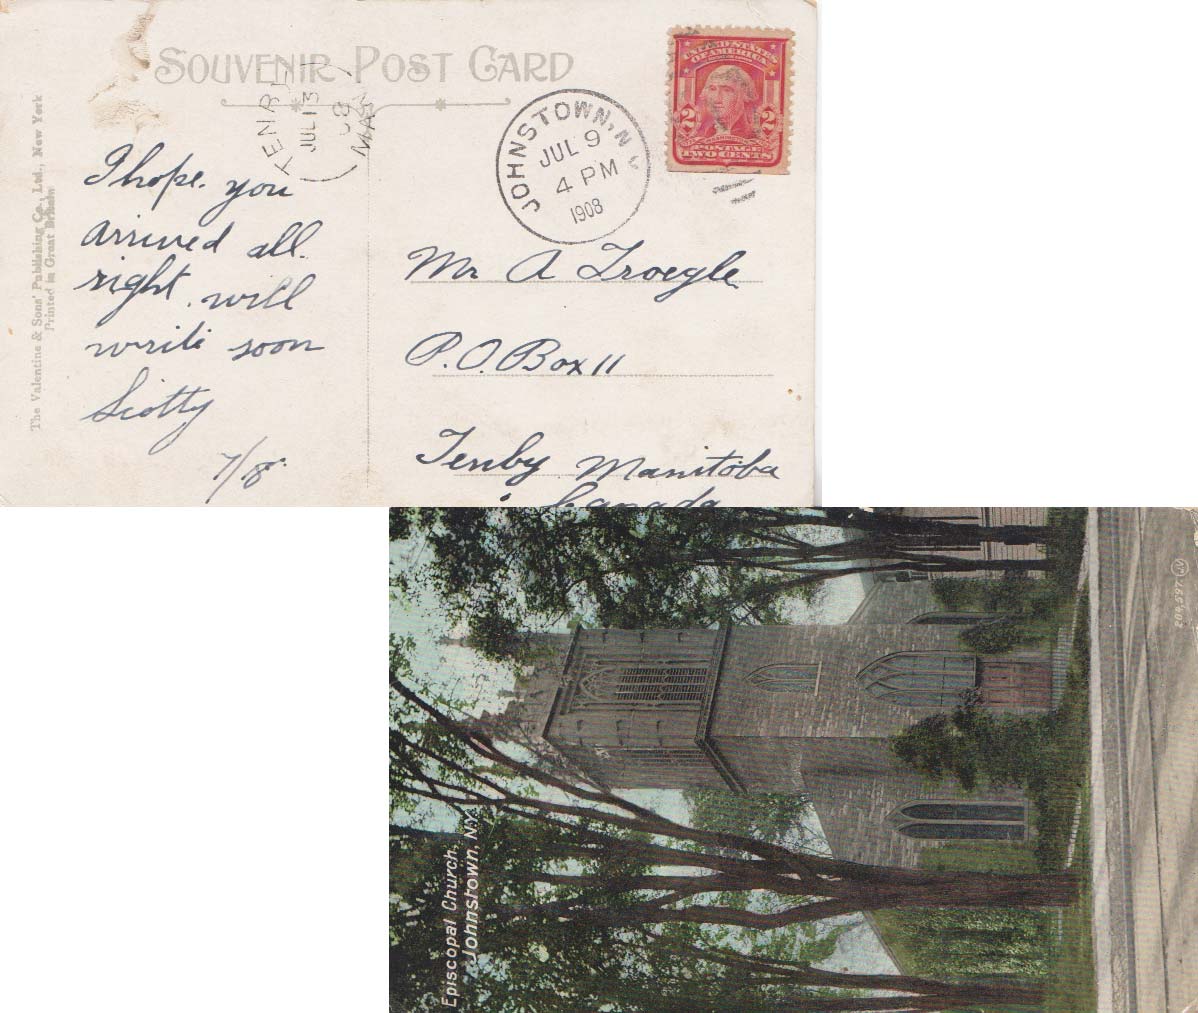 SOUVENIR POST CARD
TENBY
JUL 13
08
MAN
JOHNSTOWN, N.Y.
JUL 9
4 PM
1908
UNITED STATES
OF AMERICA
2 2
POSTAGE
TWO CENTS
The Valentine & Sons' Publishing Co., Ltd., New York
Printed in Great Britain
I hope you
arrived all
right will
write soon
Scotty
7/8
Mr A Troegle
P.O. Box 11
Tenby Manitoba
Canada
Episcopal Church,
Johnstown, N.Y.
209,597 (JV)